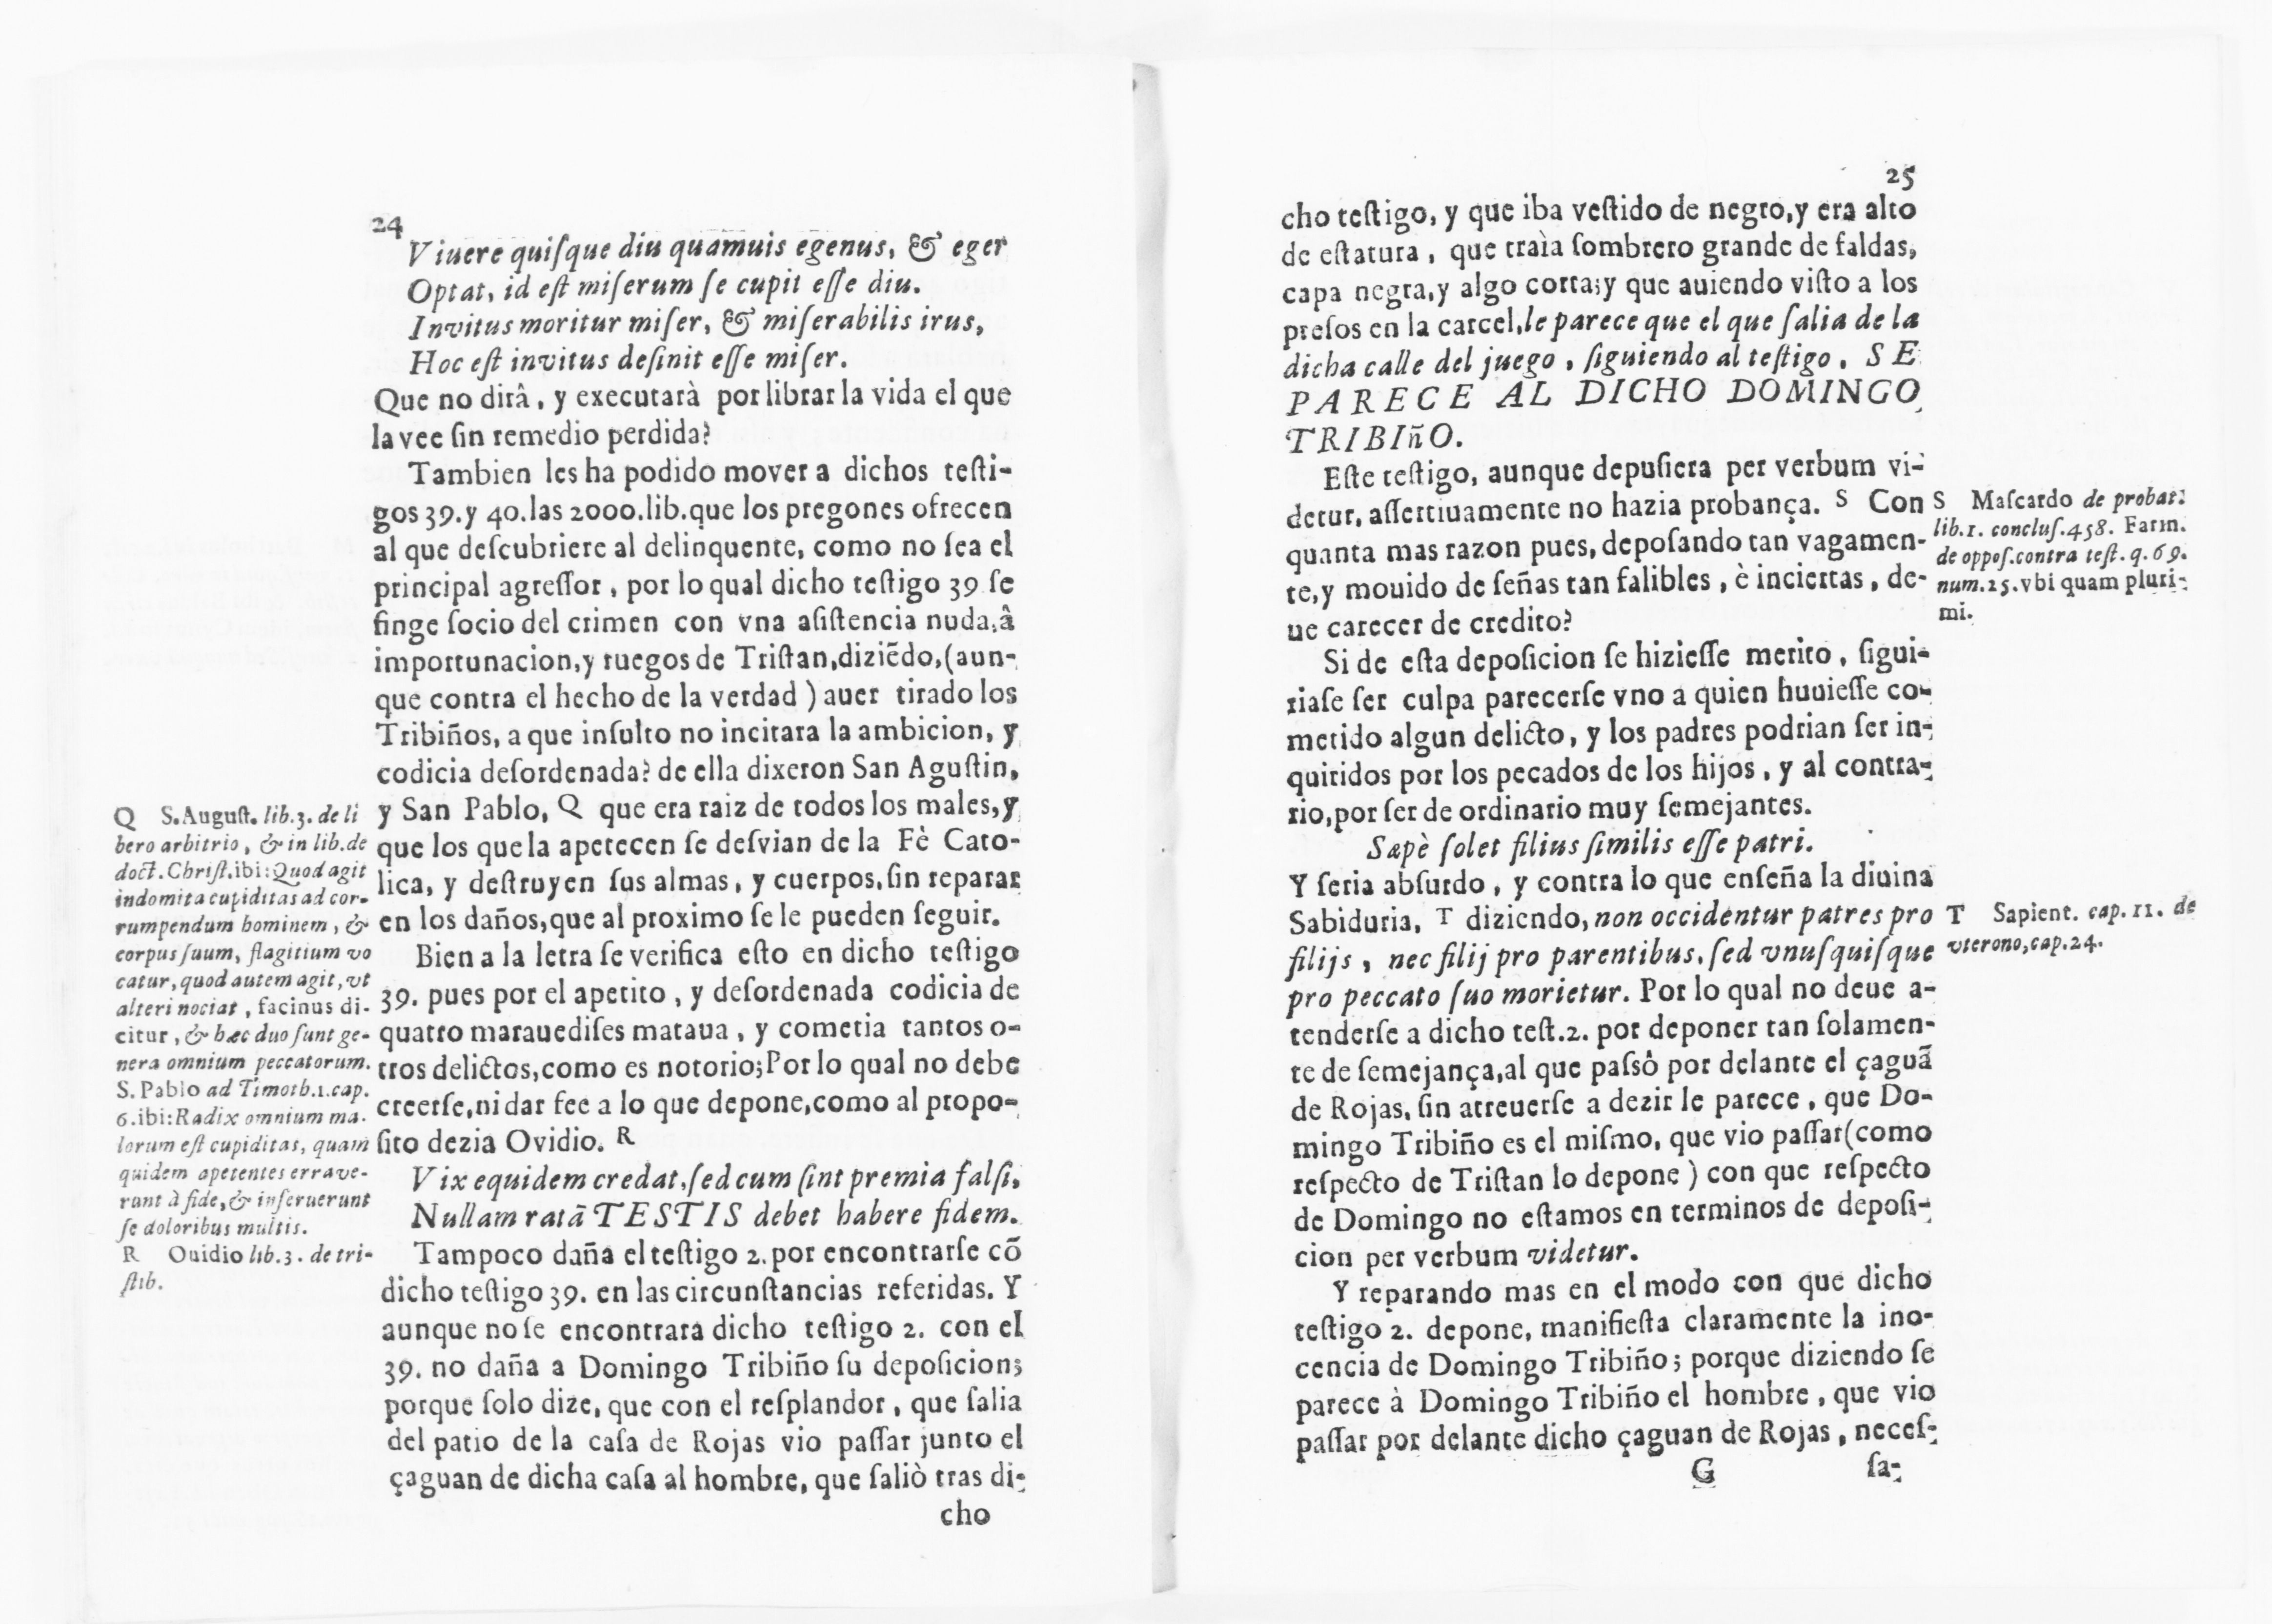 24
Viuere quiſque diu quamuis egenus, & eger
Optat, id eſt miſerum ſe cupit eſſe diu.
Invitus moritur miſer, & miſerabilis irus,
Hoc eſt invitus deſinit eſſe miſer.
Que no dirâ, y executarà por librar la vida el que
la vee ſin remedio perdida?
Tambien les ha podido mover a dichos teſti-
gos 39.y 40.las 2000.lib.que los pregones ofrecen
al que deſcubriere al delinquente, como no ſea el
principal agreſſor, por lo qual dicho teſtigo 39 ſe
finge ſocio del crimen con vna aſiſtencia nuda,â
importunacion,y ruegos de Triſtan,diziẽdo,(aun-
que contra el hecho de la verdad) auer tirado los
Tribiños, a que inſulto no incitara la ambicion, y
codicia deſordenada? de ella dixeron San Aguſtin,
y San Pablo, Q que era raiz de todos los males,y
que los que la apetecen ſe deſvian de la Fè Cato-
lica, y deſtruyen ſus almas, y cuerpos,ſin reparar
en los daños,que al proximo ſe le pueden ſeguir.
Bien a la letra ſe verifica eſto en dicho teſtigo
39. pues por el apetito, y deſordenada codicia de
quatro marauediſes mataua, y cometia tantos o-
tros delictos,como es notorio;Por lo qual no debe
creerſe,ni dar fee a lo que depone,como al propo-
ſito dezia Ovidio. R
Vix equidem credat,ſed cum ſint premia falſi,
Nullam ratã TESTIS debet habere fidem.
Tampoco daña el teſtigo 2.por encontrarſe cõ
dicho teſtigo 39. en las circunſtancias referidas. Y
aunque no ſe encontrara dicho teſtigo 2. con el
39. no daña a Domingo Tribiño ſu depoſicion;
porque ſolo dize, que con el reſplandor, que ſalia
del patio de la caſa de Rojas vio paſſar junto el
çaguan de dicha caſa al hombre, que ſaliò tras di-
cho
Q S.Auguſt. lib.3. de li
bero arbitrio, & in lib.de
doct.Chriſt.ibi:Quod agit
indomita cupiditas ad cor-
rumpendum hominem, &
corpus ſuum, flagitium vo
catur, quod autem agit, vt
alteri nociat, facinus di-
citur, & hæc duo ſunt ge-
nera omnium peccatorum.
S. Pablo ad Timoth.1.cap.
6.ibi:Radix omnium ma-
lorum eſt cupiditas, quam
quidem apetentes errave-
runt à fide,& inſeruerunt
ſe doloribus multis.
R Ouidio lib.3. de tri-
ſtib.
25
cho teſtigo, y que iba veſtido de negro,y era alto
de eſtatura, que traìa ſombrero grande de faldas,
capa negra,y algo corta;y que auiendo viſto a los
preſos en la carcel,le parece que el que ſalia de la
dicha calle del juego, ſiguiendo al teſtigo, SE
PARECE AL DICHO DOMINGO
TRIBIñO.
Eſte teſtigo, aunque depuſiera per verbum vi-
detur, aſſertiuamente no hazia probança. S Con
quanta mas razon pues, depoſando tan vagamen-
te,y mouido de ſeñas tan falibles, è inciertas, de-
ue carecer de credito?
Si de eſta depoſicion ſe hizieſſe merito, ſigui-
riaſe ſer culpa parecerſe vno a quien huuieſſe co-
metido algun delicto, y los padres podrian ſer in-
quiridos por los pecados de los hijos, y al contra-
rio,por ſer de ordinario muy ſemejantes.
Sæpè ſolet filius ſimilis eſſe patri.
Y ſeria abſurdo, y contra lo que enſeña la diuina
Sabiduria, T diziendo, non occidentur patres pro
filijs, nec filij pro parentibus, ſed vnuſquiſque
pro peccato ſuo morietur. Por lo qual no deue a-
tenderſe a dicho teſt.2. por deponer tan ſolamen-
te de ſemejança,al que paſsô por delante el çaguã
de Rojas, ſin atreuerſe a dezir le parece, que Do-
mingo Tribiño es el miſmo, que vio paſſar(como
reſpecto de Triſtan lo depone) con que reſpecto
de Domingo no eſtamos en terminos de depoſi-
cion per verbum videtur.
Y reparando mas en el modo con que dicho
teſtigo 2. depone, manifieſta claramente la ino-
cencia de Domingo Tribiño; porque diziendo ſe
parece à Domingo Tribiño el hombre, que vio
paſſar por delante dicho çaguan de Rojas, neceſ-
G ſa-
S Maſcardo de probat.
lib.1. concluſ.458. Farin.
de oppoſ.contra teſt. q.69.
num.25.vbi quam pluri-
mi.
T Sapient. cap. 11. de
vterono,cap.24.